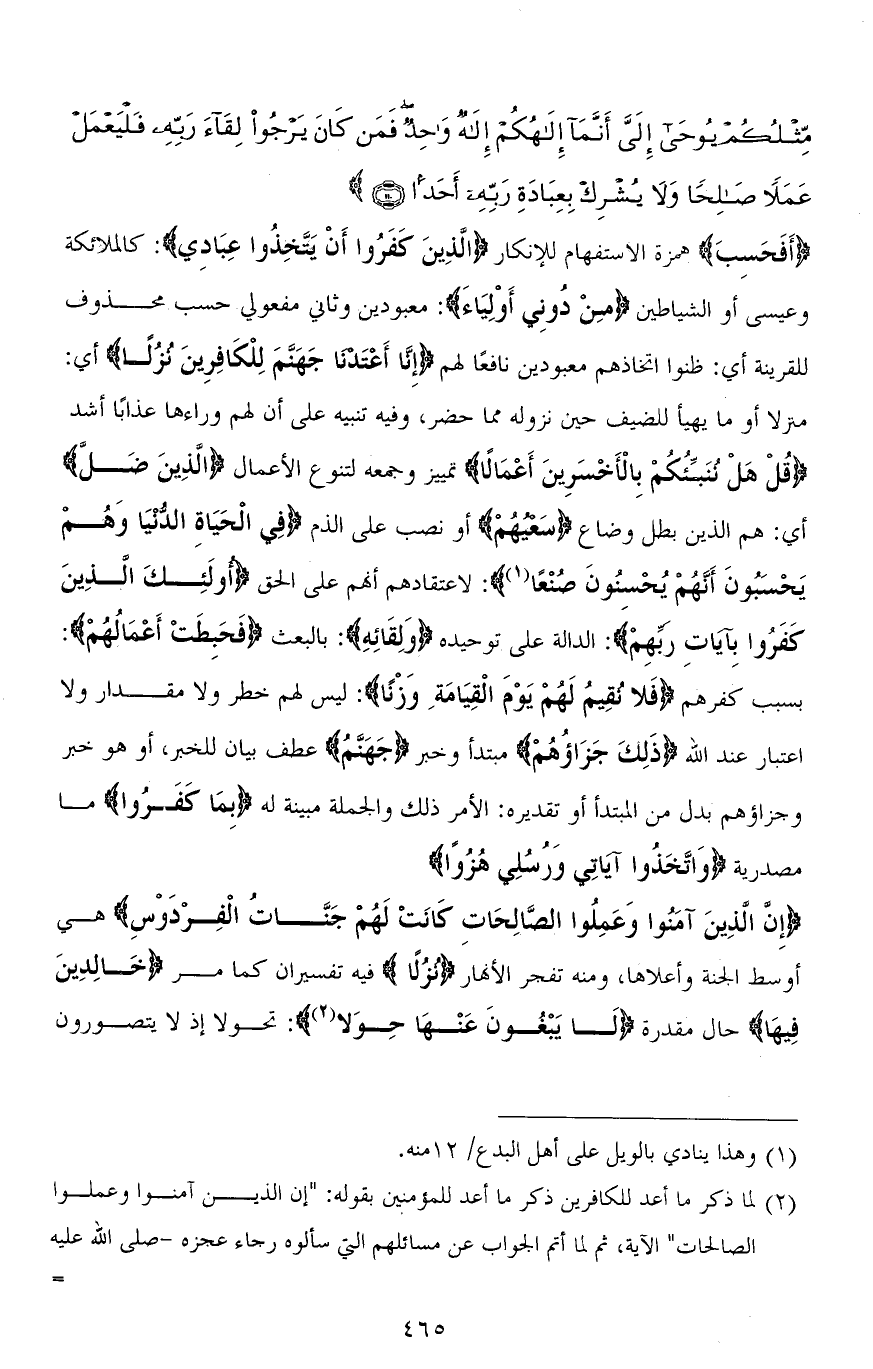 مِّثْلُكُمْ يُوحَىٰٓ إِلَىَّ أَنَّمَآ إِلَٰهُكُمْ إِلَٰهٌ وَٰحِدٌ ۖ فَمَن كَانَ يَرْجُوا۟ لِقَآءَ رَبِّهِۦ فَلْيَعْمَلْ
عَمَلًا صَٰلِحًا وَلَا يُشْرِكْ بِعِبَادَةِ رَبِّهِۦٓ أَحَدًۢا ﴿١١٠﴾ ﴾
﴿أَفَحَسِبَ﴾ همزة الاستفهام للإنكار ﴿الَّذِينَ كَفَرُوا أَنْ يَتَّخِذُوا عِبَادِي﴾: كالملائكة
وعيسى أو الشياطين ﴿مِنْ دُونِي أَوْلِيَاءَ﴾: معبودين وثاني مفعولي حسب محذوف
للقرينة أي: ظنوا اتخاذهم معبودين نافعًا لهم ﴿إِنَّا أَعْتَدْنَا جَهَنَّمَ لِلْكَافِرِينَ نُزُلًا﴾ أي:
منزلا أو ما يهيأ للضيف حين نزوله مما حضر، وفيه تنبيه على أن لهم وراءها عذابًا أشد
﴿قُلْ هَلْ نُنَبِّئُكُمْ بِالْأَخْسَرِينَ أَعْمَالًا﴾ تمييز وجمعه لتنوع الأعمال ﴿الَّذِينَ ضَلَّ﴾
أي: هم الذين بطل وضاع ﴿سَعْيُهُمْ﴾ أو نصب على الذم ﴿فِي الْحَيَاةِ الدُّنْيَا وَهُمْ
يَحْسَبُونَ أَنَّهُمْ يُحْسِنُونَ صُنْعًا(١)﴾: لاعتقادهم أنهم على الحق ﴿أُولَئِكَ الَّذِينَ
كَفَرُوا بِآيَاتِ رَبِّهِمْ﴾: الدالة على توحيده ﴿وَلِقَائِهِ﴾: بالبعث ﴿فَحَبِطَتْ أَعْمَالُهُمْ﴾:
بسبب كفرهم ﴿فَلا نُقِيمُ لَهُمْ يَوْمَ الْقِيَامَةِ وَزْنًا﴾: ليس لهم خطر ولا مقدار ولا
اعتبار عند الله ﴿ذَلِكَ جَزَاؤُهُمْ﴾ مبتدأ وخبر ﴿جَهَنَّمُ﴾ عطف بيان للخبر، أو هو خبر
وجزاؤهم بدل من المبتدأ أو تقديره: الأمر ذلك والجملة مبينة له ﴿بِمَا كَفَرُوا﴾ ما
مصدرية ﴿وَاتَّخَذُوا آيَاتِي وَرُسُلِي هُزُوًا﴾
﴿إِنَّ الَّذِينَ آمَنُوا وَعَمِلُوا الصَّالِحَاتِ كَانَتْ لَهُمْ جَنَّاتُ الْفِرْدَوْسِ﴾ هي
أوسط الجنة وأعلاها، ومنه تفجر الأنهار ﴿نُزُلًا﴾ فيه تفسيران كما مر ﴿خَالِدِينَ
فِيهَا﴾ حال مقدرة ﴿لَا يَبْغُونَ عَنْهَا حِوَلا(٢)﴾: تحولا إذ لا يتصورون
(١) وهذا ينادي بالويل على أهل البدع/ ١٢منه.
(٢) لما ذكر ما أعد للكافرين ذكر ما أعد للمؤمنين بقوله: "إن الذين آمنوا وعملوا
الصالحات" الآية، ثم لما أتم الجواب عن مسائلهم التي سألوه رجاء عجزه -صلى الله عليه
=
٤٦٥